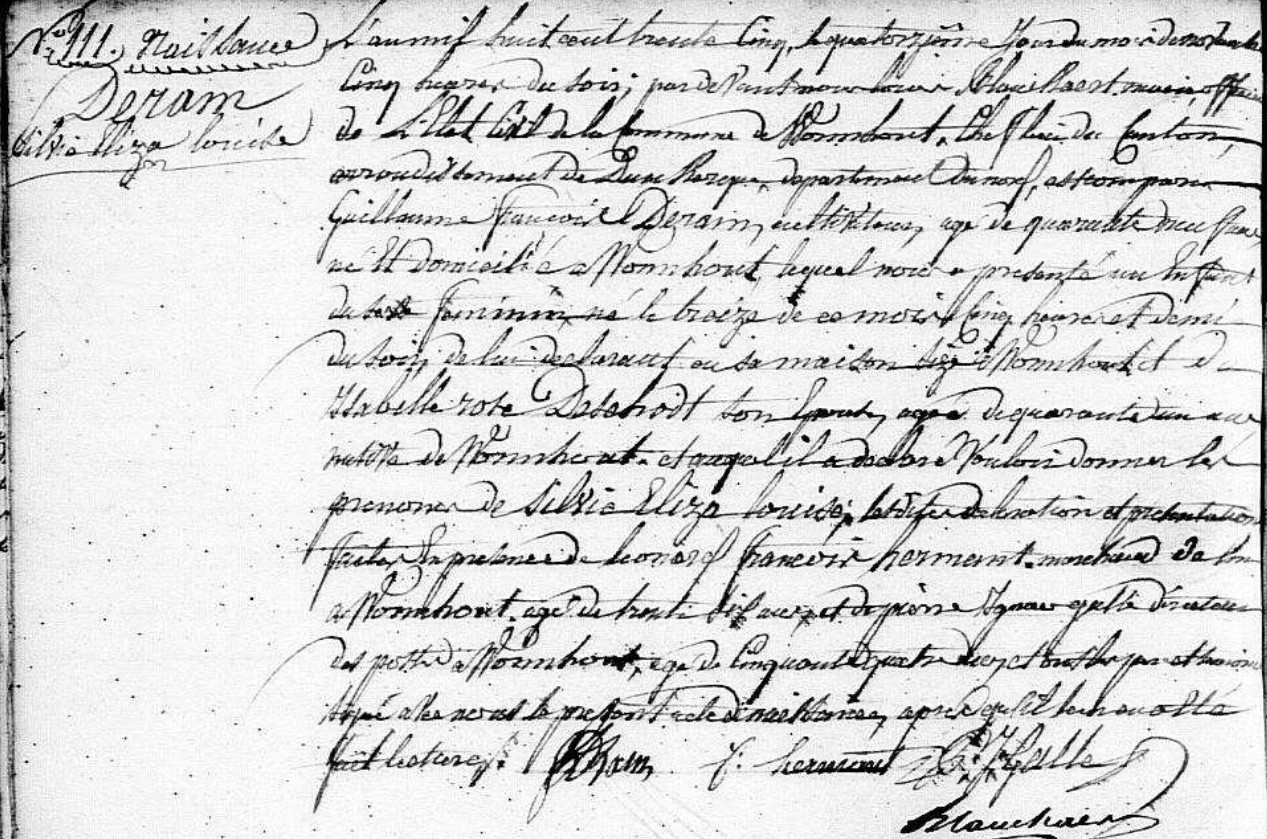 N° 111. Naissance
Deram
Silvie Eliza louise
L'an mil huit cent trente Cinq, le quatorzième Jour du mois de novembre
Cinq heures du soir, par devant nous louis Blanckaert maire, officier
de L'Etat Civil de la Commune de Wormhout, Chef lieu du Canton,
arrondissement de Dunkerque, departement Du nord, est comparu
Guillaume françois Deram, cultivateur, agé de quarante deux ans,
né Et domicilié a Wormhout, lequel nous a presenté un Enfant
du sexe feminin, né le treize de ce mois Cinq heures et demi
du soir, de lui declarant en sa maison size à Wormhout et de
Isabelle rose Deschodt son Epouse, agée de quarante un ans
native de Wormhout, et auquel il a declaré Vouloir donner les
prenoms de Silvie Eliza louise; lesdites declaration et presentation
faites En presence de leonard françois hermant, marchand
a Wormhout, agé de trente ans, et de pierre Ignace gelle directeur
des postes à Wormhout, agé de Cinquante quatre ans, et ont les pere et temoins
signé avec nous le present acte de naissance, apres qu'il leur en a été
fait lecture.
Deram f. hermant P. J. Gelle
Blanckaert